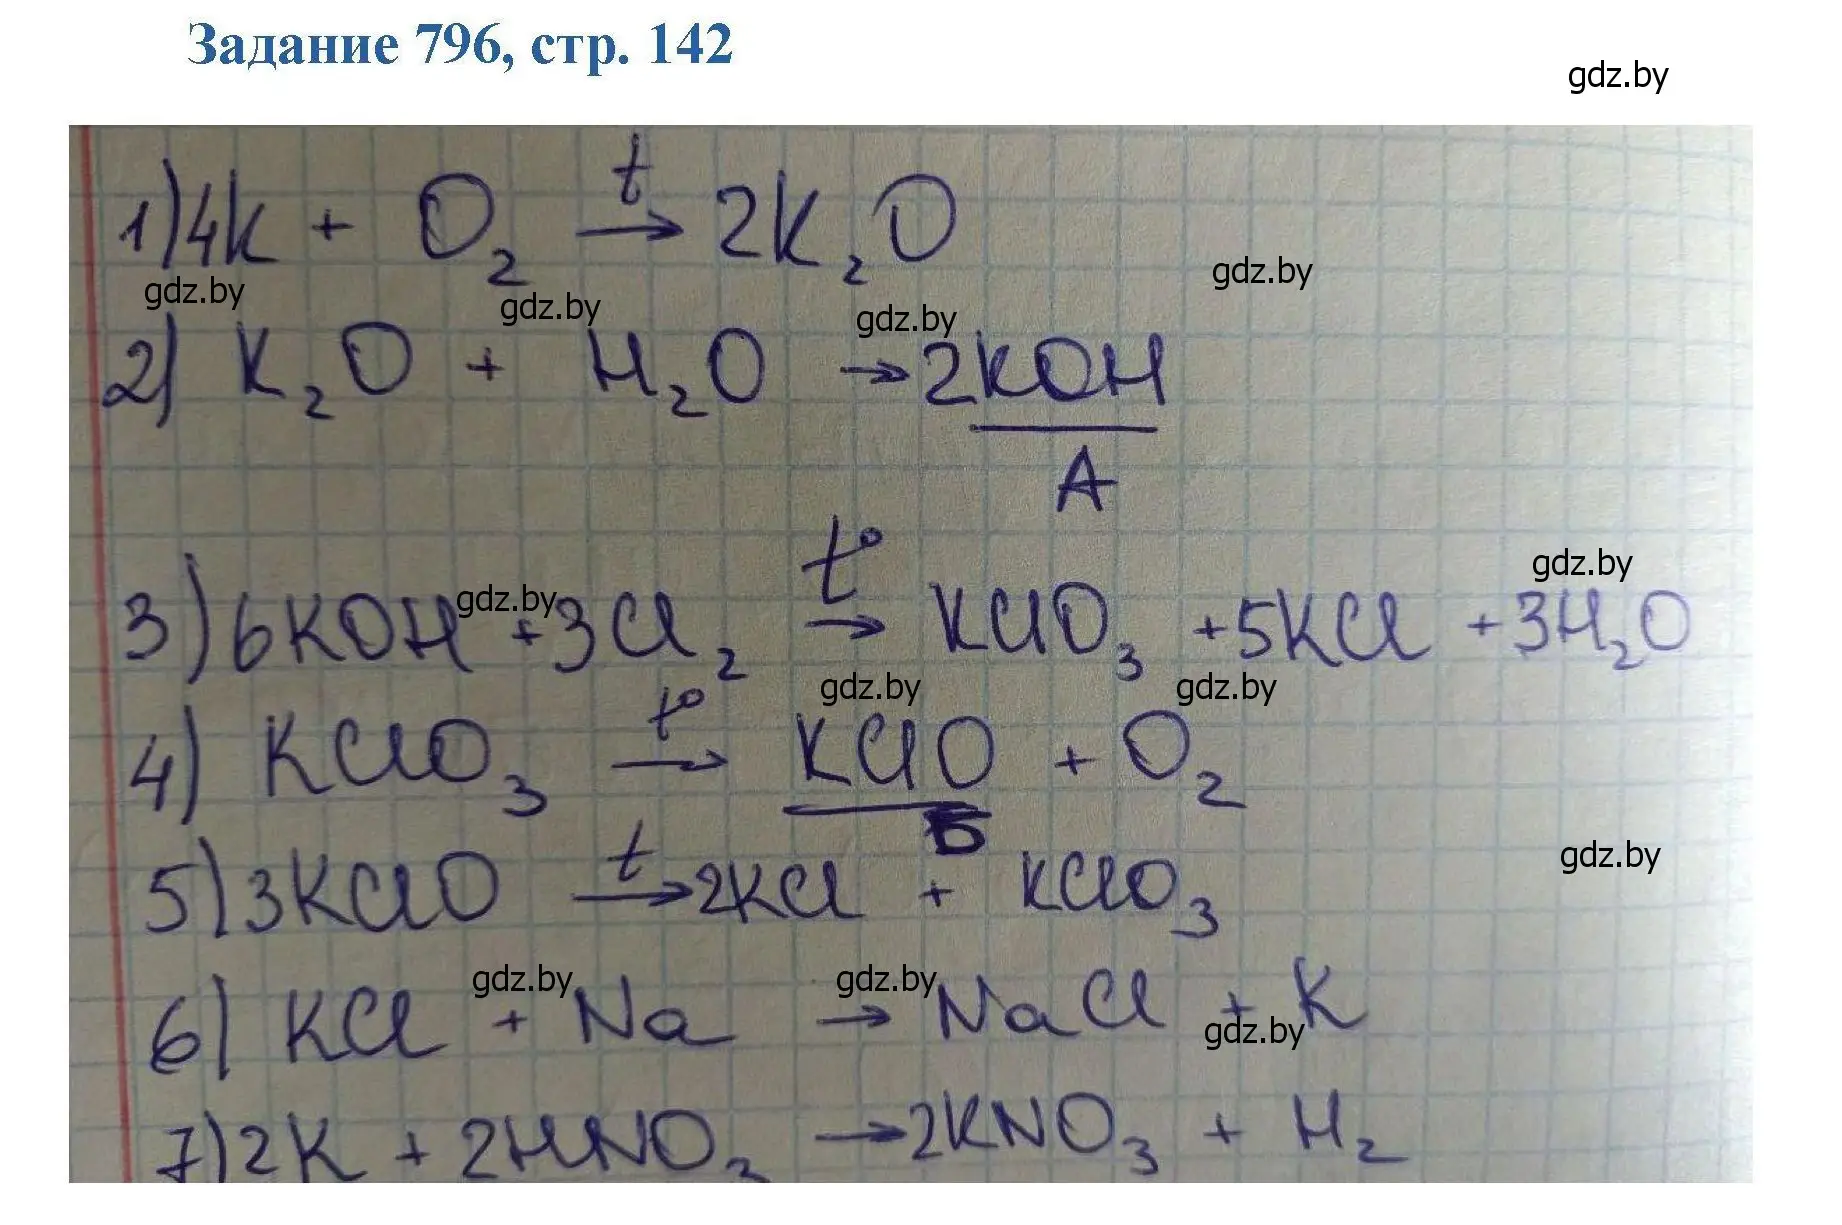 Задание 796, стр. 142
gdz.by
1) 4K + O₂ →ᵗ 2K₂O
gdz.by gdz.by gdz.by gdz.by
2) K₂O + H₂O → 2KOH
A
gdz.by gdz.by
3) 6KOH + 3Cl₂ →ᵗ° KClO₃ + 5KCl + 3H₂O
gdz.by gdz.by
4) KClO₃ →ᵗ° KClO + O₂
Б
gdz.by
5) 3KClO →ᵗ 2KCl + KClO₃
gdz.by gdz.by gdz.by
6) KCl + Na → NaCl + K
7) 2K + 2HNO₃ → 2KNO₃ + H₂